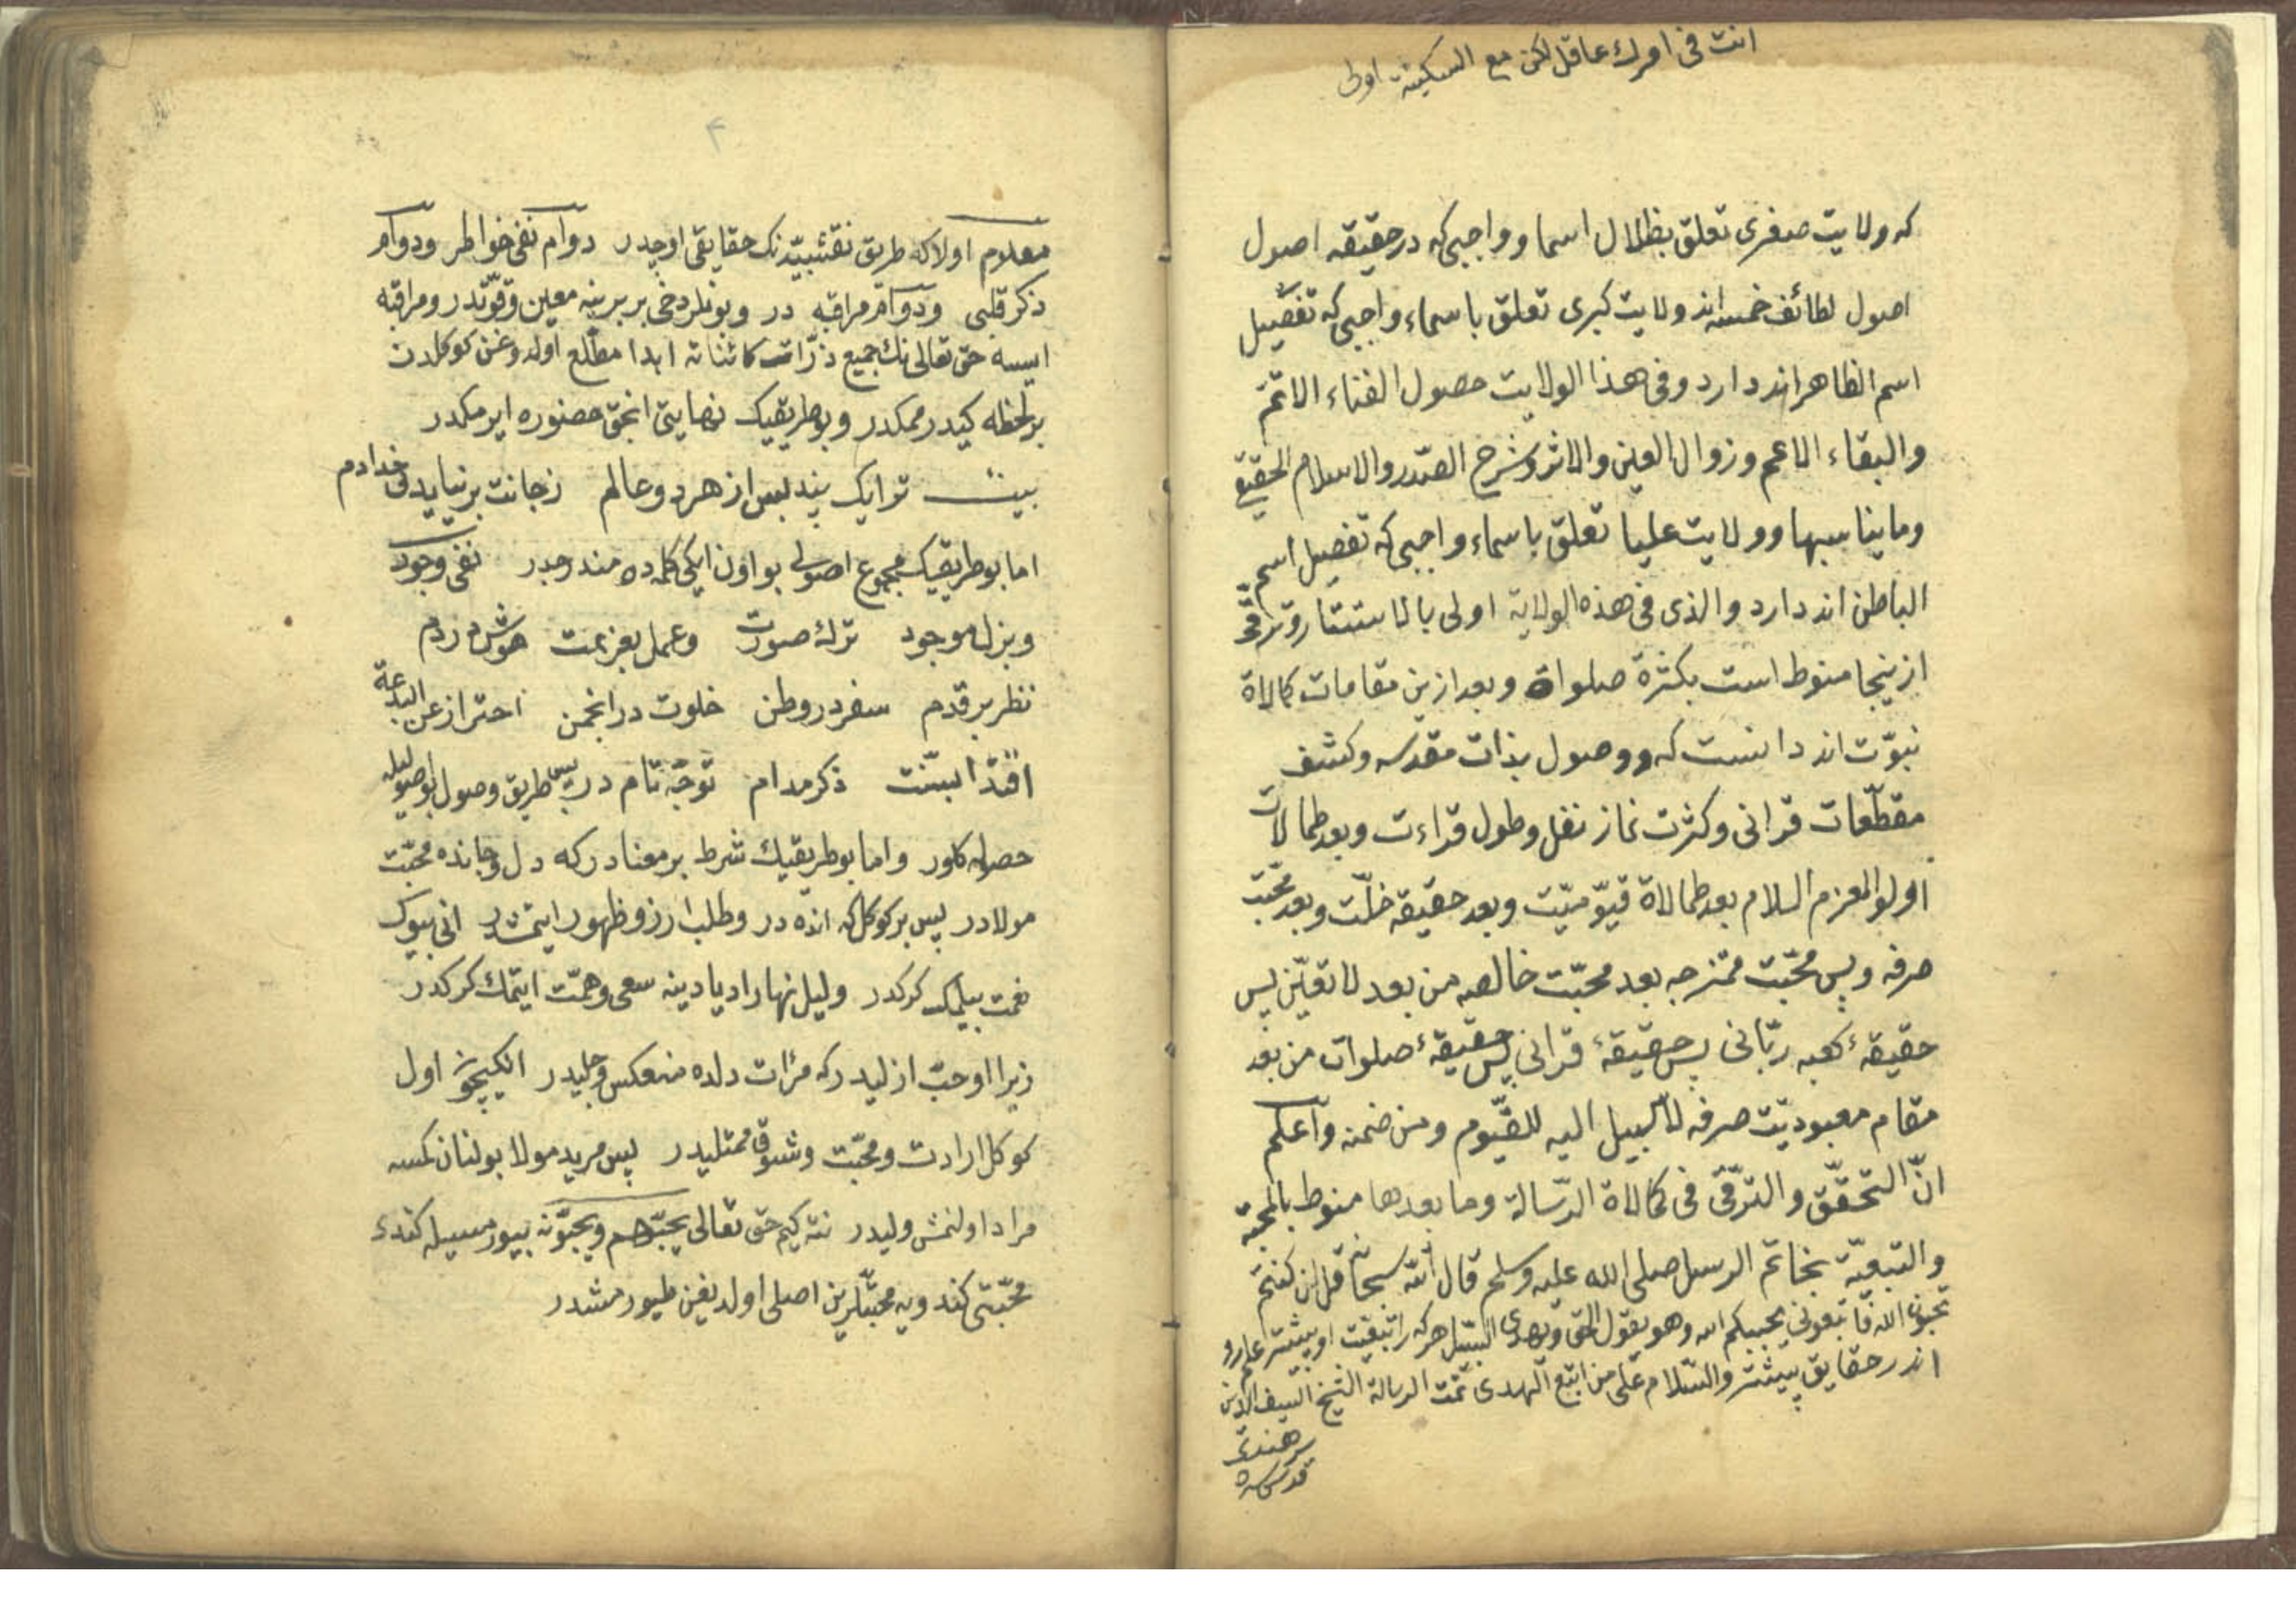 انت فی امرك عاقل لكن مع السكینه اولی
كه ولایت صغری تعلق بظلال اسما و واجبی كه در حقیقه اصول
اصول لطائف خمسه اند ولایت كبری تعلق باسماء واجبی كه تفصیل
اسم الظاهر اند دارد وفی هذا الولایت حصول الفناء الاتم
والبقاء الاعم وزوال العین والاثر وشرح الصدر والاسلام الحقیقی
وما یناسبها وولایت علیا تعلق باسماء واجبی كه تفصیل اسم
الباطن اند دارد والذی فی هذه الولایة اولی بالاستتار وترقی
ازینجا منوط است بكثرة صلواة وبعد ازین مقامات كمالاة
نبوّت اند دانست كه ووصول بذات مقدسه وكشف
مقطّعات قرانی وكثرت نماز نفل وطول قراءت وبعد كمالات
اولوالعزم السلام بعد كمالاة قیّومیّت وبعد حقیقه خلّت وبعد محبّت
صرفه وپس محبّت ممتزجه بعد محبّت خالصه من بعد لا تعیّن پس
حقیقهٔ كعبه ربّانی پس حقیقهٔ قرانی پس حقیقهٔ صلوات من بعد
مقام معبودیّت صرفه لا سبیل الیه للقیّوم ومن ضمنه واعلم
انّ التحقّق والترقّی فی كمالاة الرّسالة وما بعدها منوط بالمحبة
والتبعیّة بخاتم الرسل صلی الله علیه وسلم قال الله سبحانه قل ان كنتم
تحبون الله فاتبعونی یحببكم الله وهو یقول الحق ویهدی السّبیل هركه را تبعیت او بیشتر علم او
اندر حقایق پیشتر والسّلام علی من اتبع الهدی تمّت الرسالة الشیخ السیف الدین
سرهندی
قدس سره
۴
معلوم اولا كه طریق نقشبیّدنك حقایقی اوچدر دوام نفی خواطر ودوام
ذكر قلبی ودوام مراقبه در وبونلر دخی بر برینه معین وقوّتدر ومراقبه
ایسه حق تعالی نك جمیع ذرّات كائناته ابدا مطّلع اولدوغن كوكلدن
بر لحظه كیدرممكدر وبوطریقیك نهایتی انجق حضوره ایرمكدر
بیت ترا یك پند بس از هر دو عالم زجانت بر نیاید بی خدا دم
اما بوطریقیك مجموع اصولی بو اون ایكی كلمه ده مندرجدر نفی وجود
وبزل موجود ترك صورت وعمل بعزیمت هوش در دم
نظر بر قدم سفر در وطن خلوت در انجمن احتراز عن البدعة
اقتدا بسنّت ذكر مدام توجّه تام در پس طریق وصول بو اصول ایله
حصوله كلور واما بوطریقیك شرط بر معنادر كه دل وجانده محبّت
مولادر پس بر كوكل كه انده در وطلب ارزو ظهور ایتمشدر انی بیوك
نعمت بیلمك كركدر ولیل نهارا دیادینه سعی وهمّت ایتمك كركدر
زیرا اوحبّ ازلیدر كه مرٔات دلده منعكس وجلیدر انكیچون اول
كوكل ارادت ومحبّت وشوق ممتلیدر پس مرید مولا بولنان كمسه
مراد اولنمش ولیدر نته كیم حق تعالی یحبّهم ویحبّونه بیورمسیله كندی
محبّتی كندویه محبّتلرین اصلی اولدیغین طیورمشدر